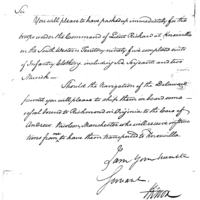 Sir
You will please to have packed up immediately for the
troops under the Command of Lieut Rickard at Knoxville
in the South Western Territory ninety five complete suits
of Infantry Clothing including Six Serjeants and two
Musick —
Should the navigation of the Delaware
permit you will please to ship them on board a
vessel bound to Richmond in Virginia to the care of
Andrew Manchester who will receive
tions from to have them transported to Knoxville
I am Your humble
Servant
HKnox